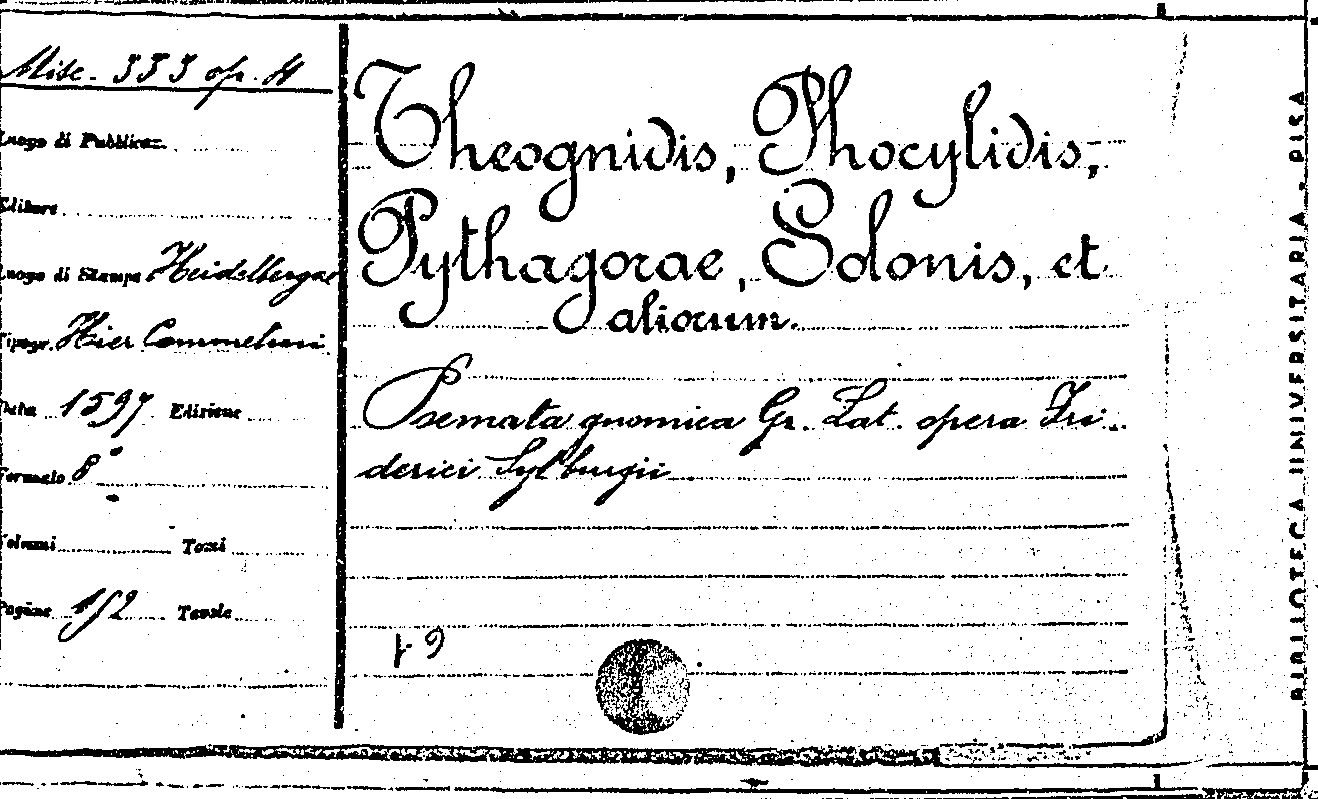 Misc. 333 op. 4
Luogo di Pubblicaz.
Editore
Luogo di Stampa Heidelbergae
Tipogr. Hier Commelini
Data 1597 Edizione
Formato 8°
Volumi Tomi
Pagine 152 Tavole
Theognidis, Phocylidis,
Pythagorae, Solonis, et
aliorum.
Poemata gnomica Gr. Lat. opera Fri
derici Sylburgii
BIBLIOTECA UNIVERSITARIA - PISA